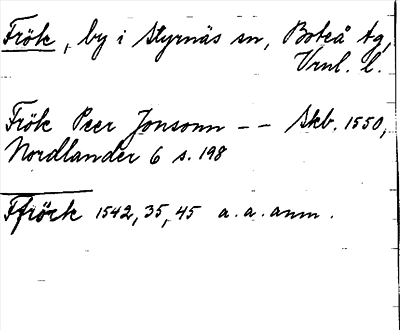 Frök, by i Styrnäs sn, Boteå tg,
Vrnl. l.
Frök Peer Jonsonn -- Skb. 1550,
Nordlander 6 s. 198
Ffiörk 1542, 35, 45 a. a. anm.